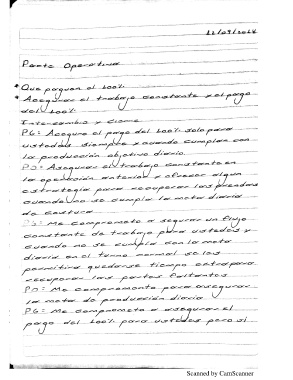 12/09/2024
Parte Operativa
* Que paguen el 100%
* Asegurar el trabajo constante y el pago
del 100%
Intercambio y Cierre
PG: Aseguro el pago del 100% solo para
ustedes siempre y cuando cumplan con
la producción objetivo diario.
PO: Asegurar el trabajo constante en
la operación anterior y ofrecer algun
estrategia para recuperar las prendas
cuando no se cumpla la meta diaria
de costura
PG: Me comprometo a segurar un flujo
constante de trabajo para ustedes y
cuando no se cumpla con la meta
diaria en el turno normal se les
permitira quedarse tiempo extra para
recuperar las partes faltantes
PO: Me compromonto para asegurar
la meta de producción diaria
PG: Me comprometo a asegurar el
pago del 100% para ustedes pero si
Scanned by CamScanner